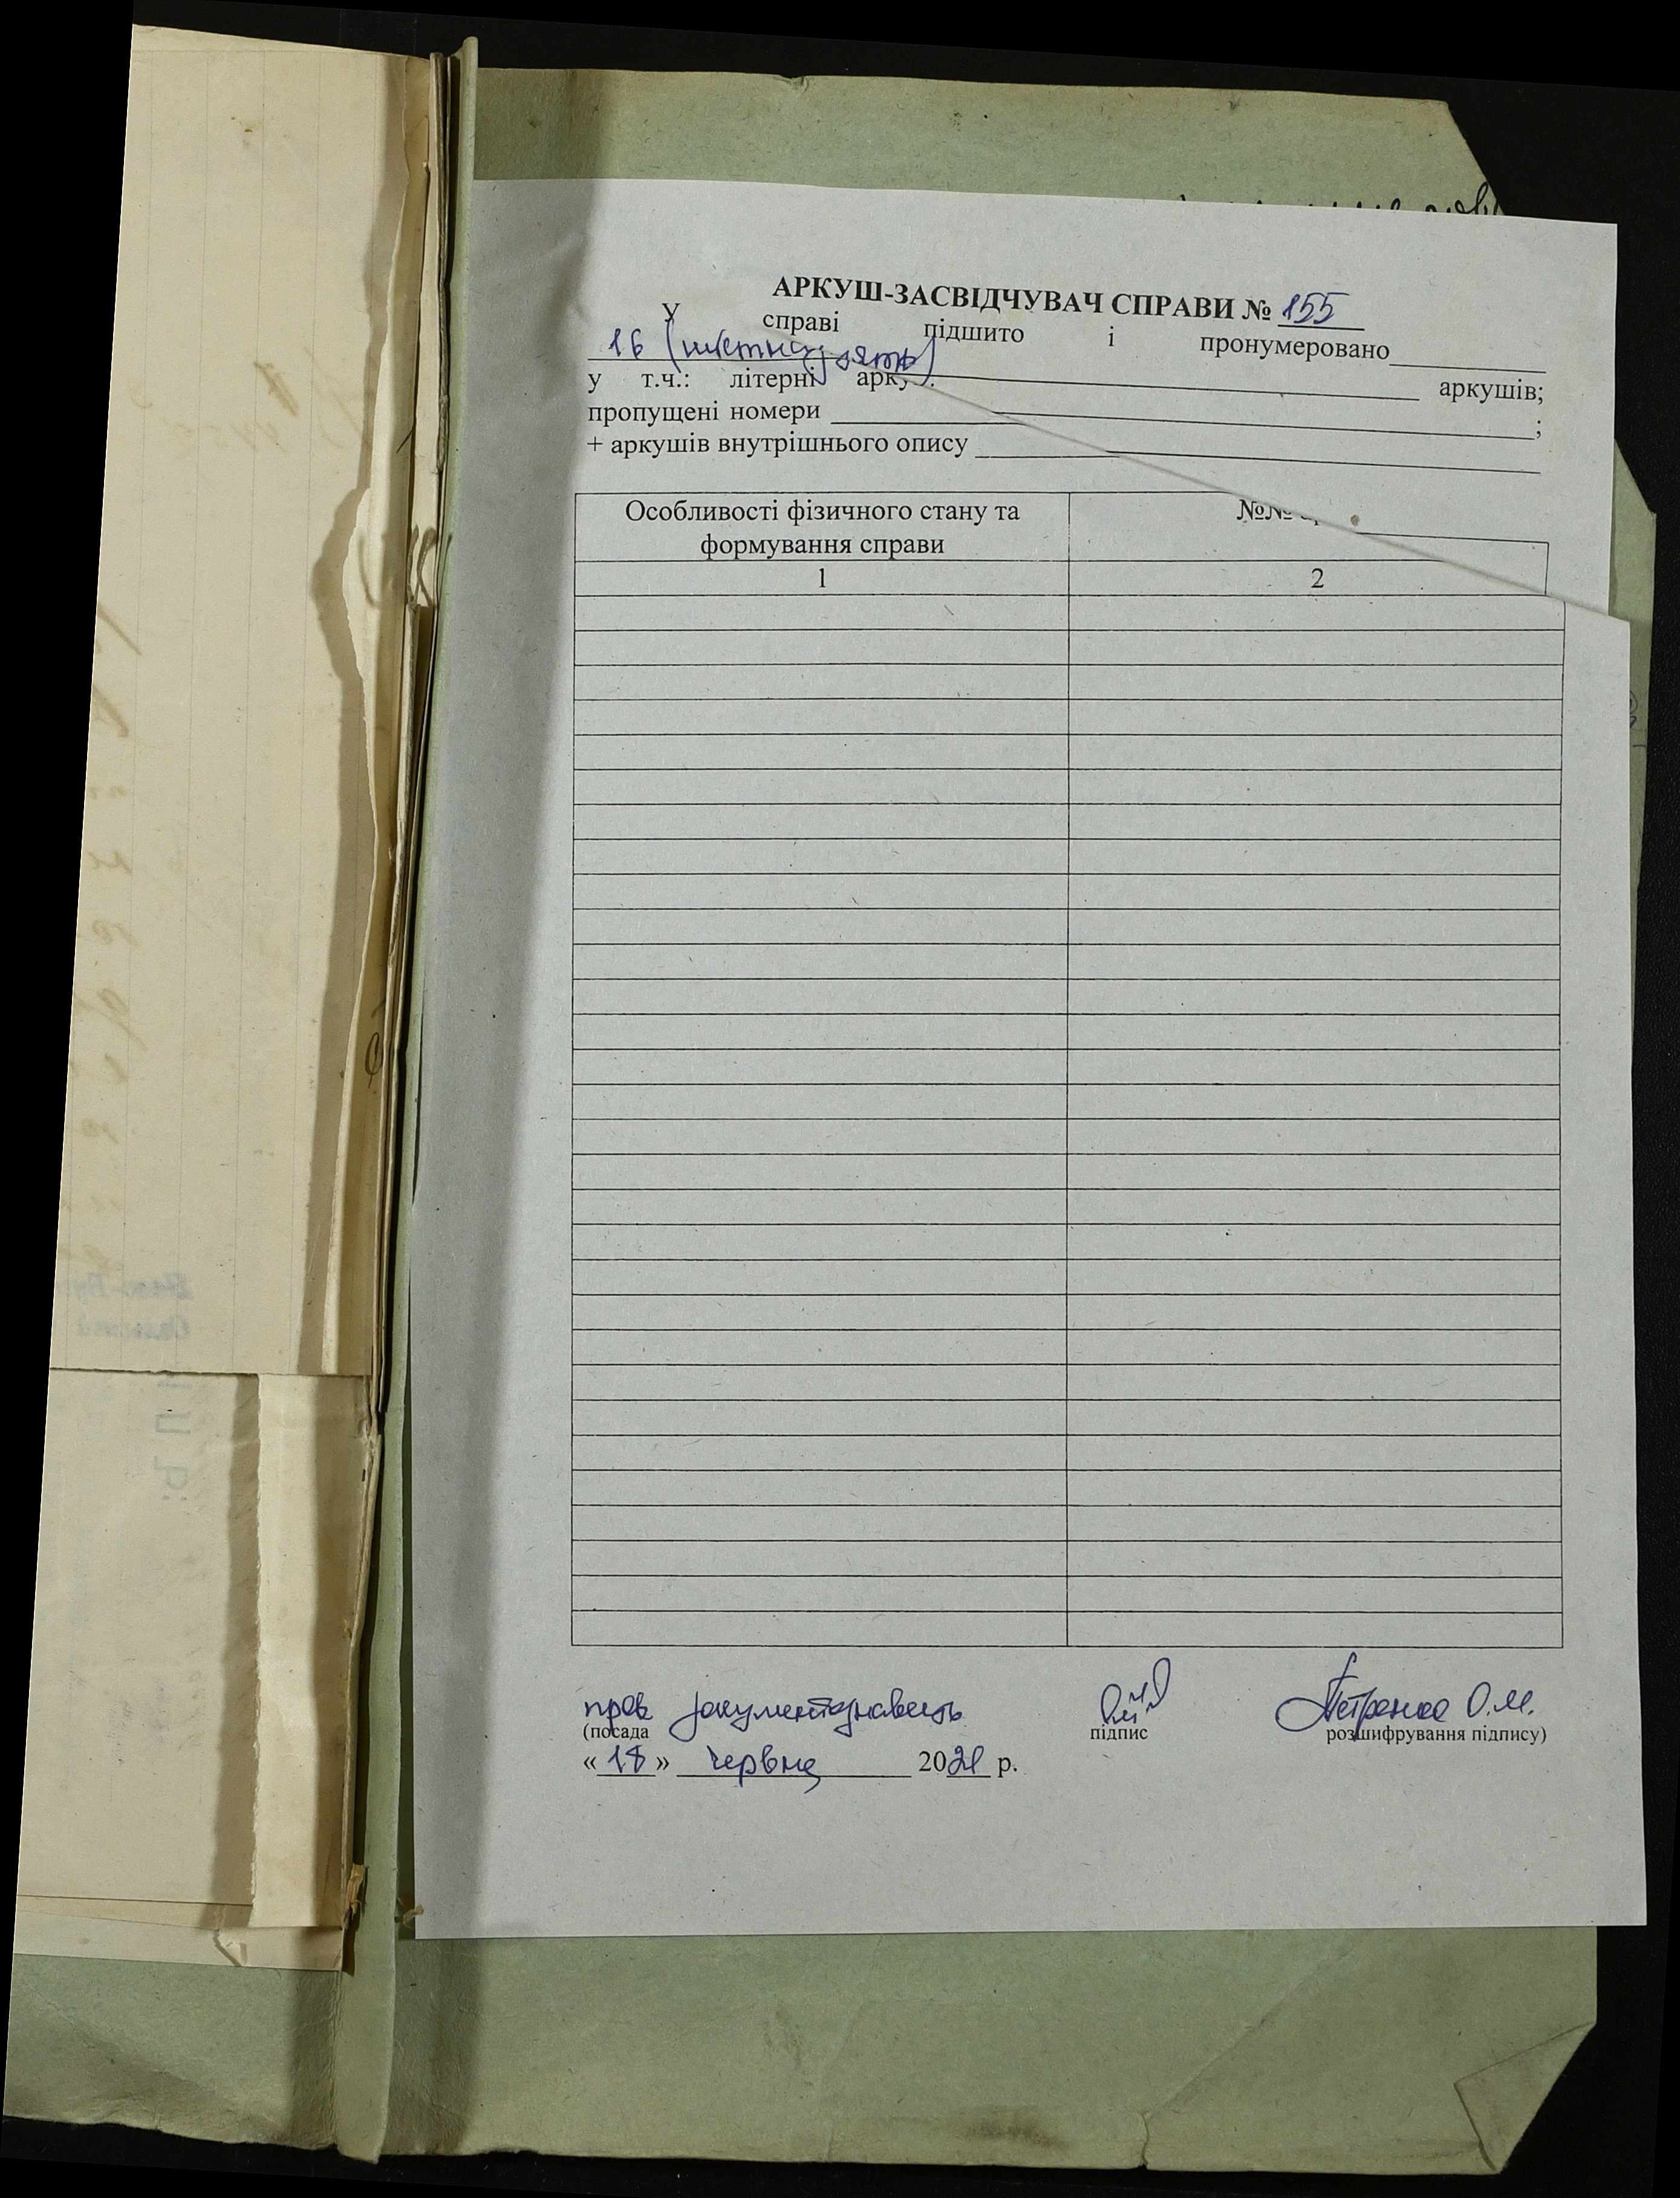 АРКУШ-ЗАСВІДЧУВАЧ СПРАВИ № 155
У справі підшито і пронумеровано
16 (шістнадцять)
у т.ч.: літерні арку аркушів;
пропущені номери ;
+ аркушів внутрішнього опису
Особливості фізичного стану та формування справи
№№
1 2
пров документознавець Петренко О.М.
(посада підпис розшифрування підпису)
« 18 » червня 2021 р.